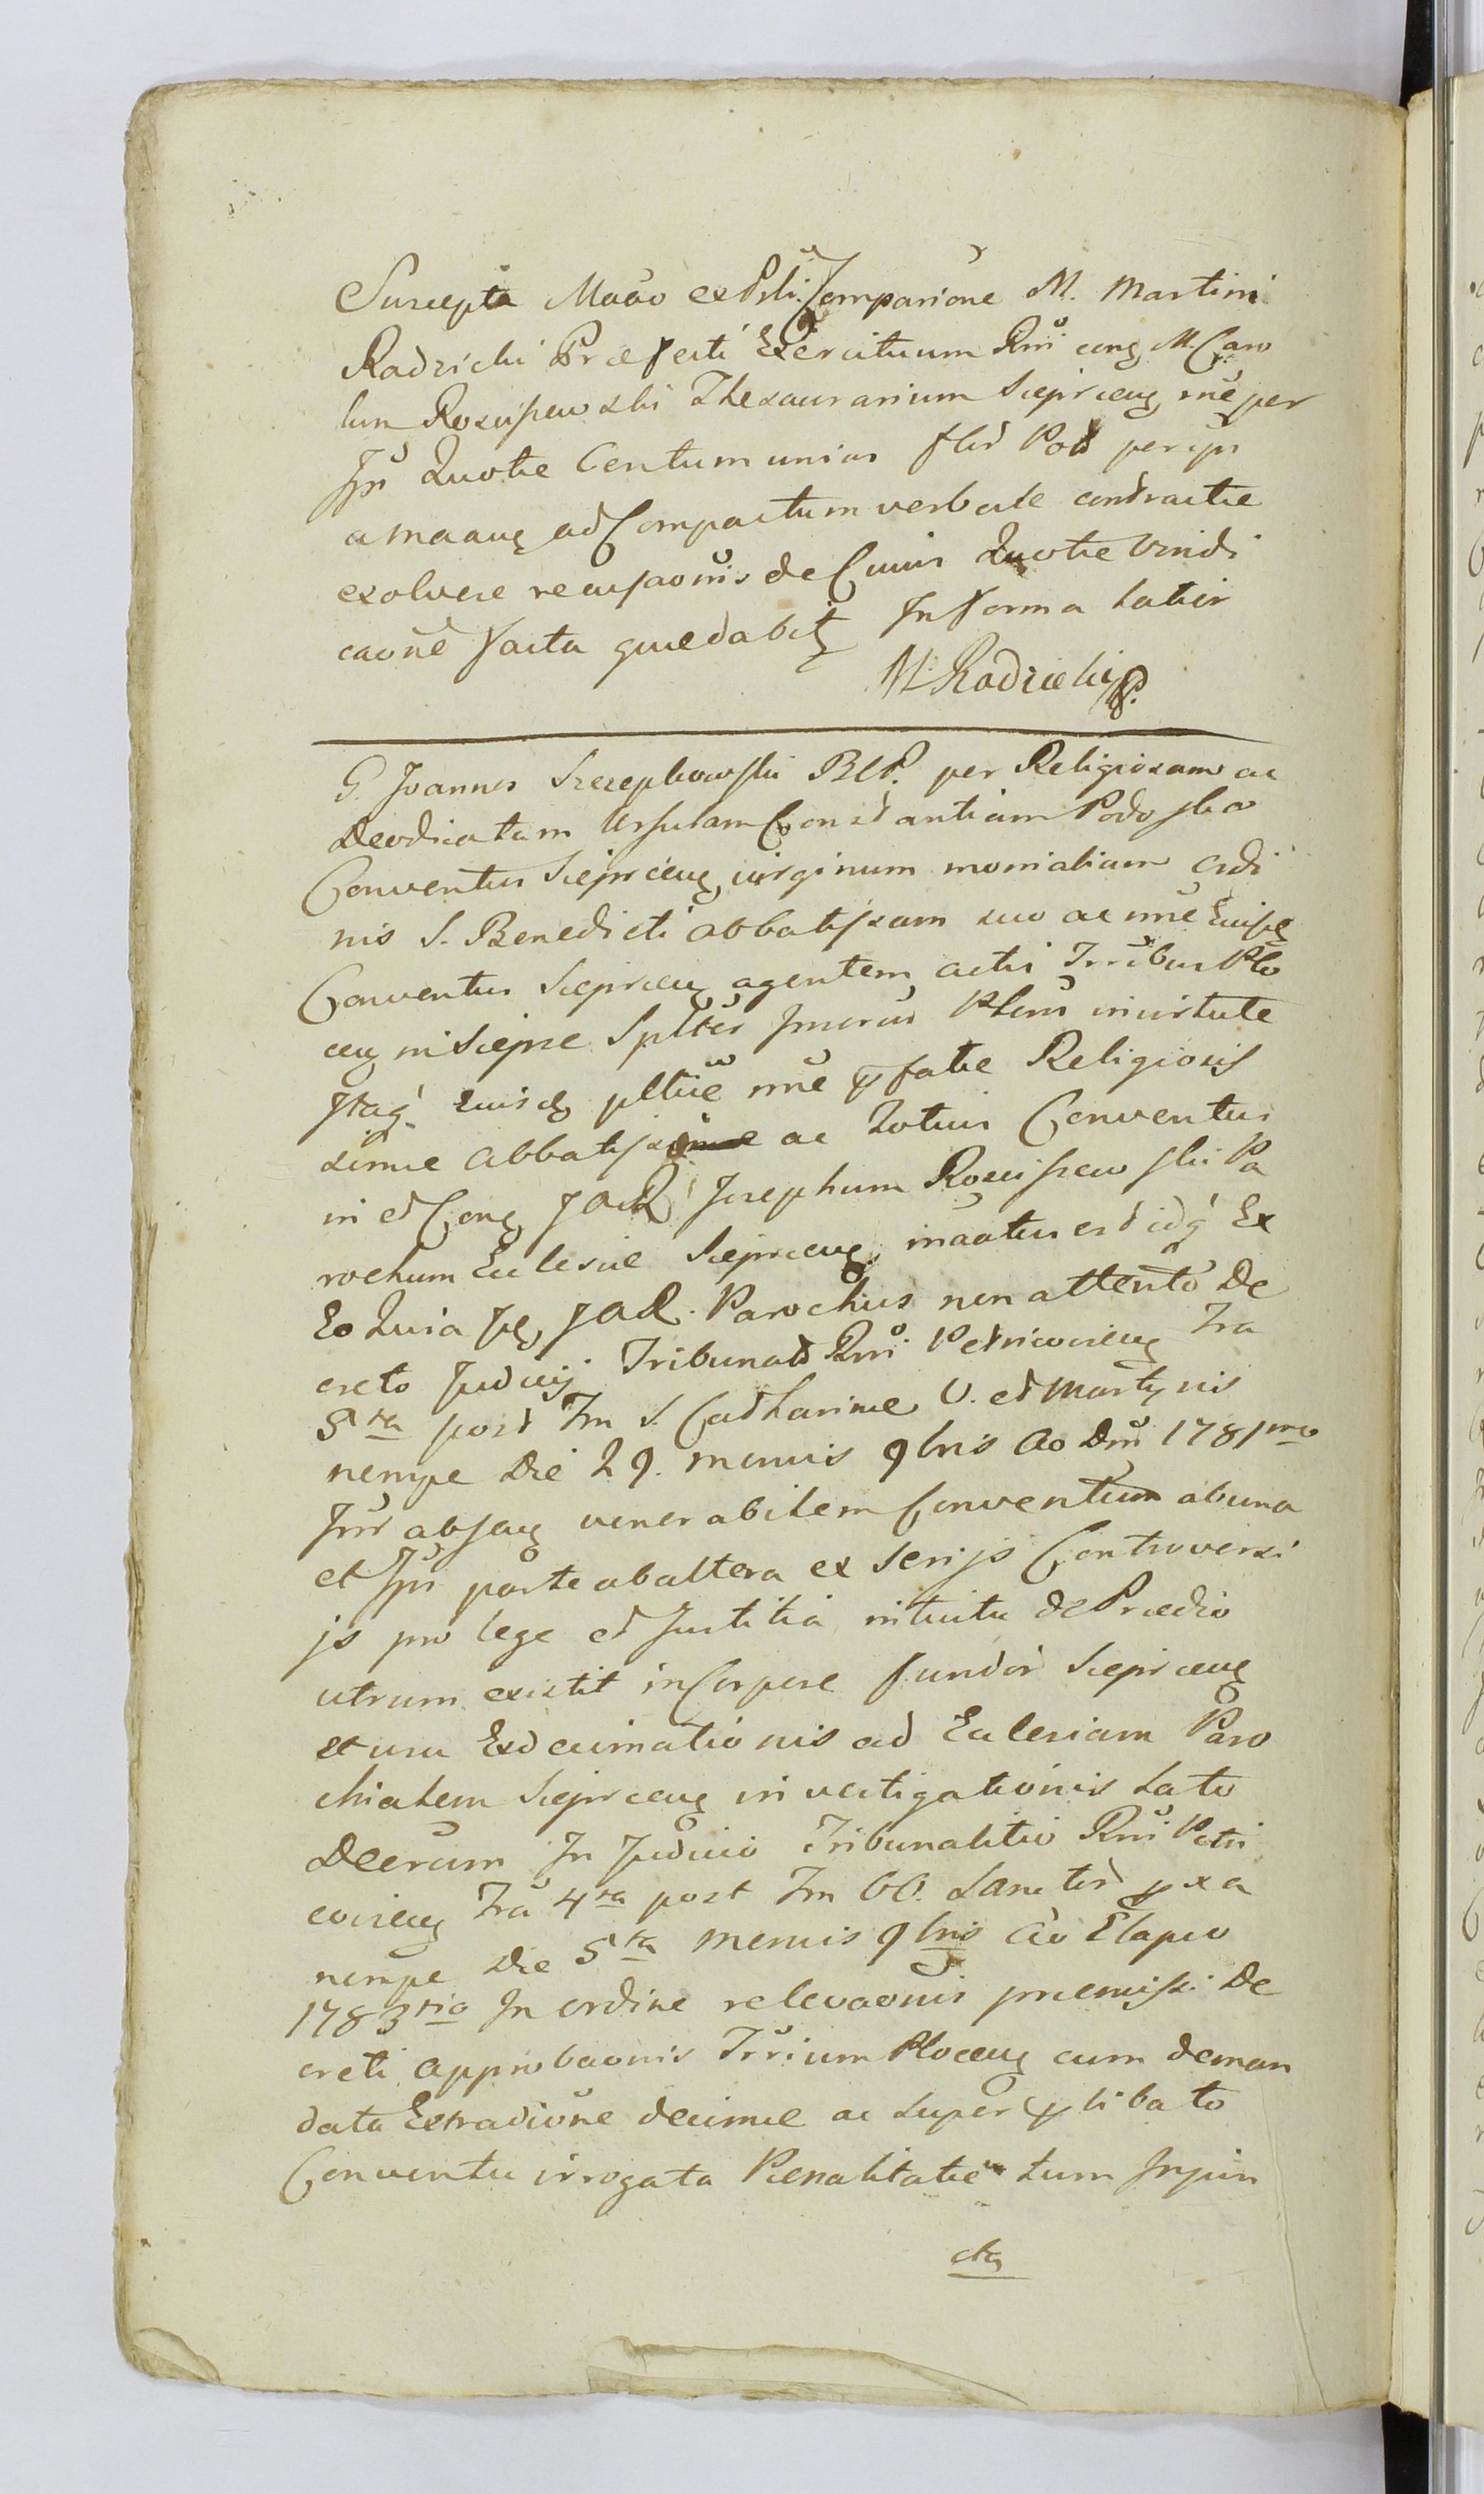 Suscepta Maõo ex Prli Comparione M. Martini
Radzicki Præfecti Exercituum Rni cong M. Caro
lum Roscissewski Thesaurarium Sieprceng mẽ per
Ipũ Quotæ Centum unius flor Pol per ips
a maang ad Compactum verbale contractæ
exolvere recusaonis de Cuius Quotæ Vindi
caonẽ facta quædabit In forma Latior
M. Radzicki
G. Joannes Szczepkowski BCP. per Religiosam ac
Deodicatam Ursulam Constantiam Podoska
Conventus Sieprceng virginum monialium Ordi
nis S. Benedicti abbatissam suo ac nnẽ Euisq
Conventus Sieprceng agentem actis Trribus Plo
ceng in Sieprc Spltẽr Plenũ in virtute
Euisdq nnẽ Religiosis
simæ Abbatiss ac Totius Conventus
in et Cong JAR Josephum Roscissewski Pa
rochum Ecclesiæ Sieprceng inaatus est idq Ex
Eo Quia JAR. Parochus non attento De
creto Judicij Tribunal Rni Petricoviceng Fra
5ta post Fm S. Catharinæ V. et Martyris
nempe Die 29. mensis 9bris Ao Dni 1781mo
venerabilem Conventum ab una
et Ipũ parte ab altera ex Serijs Controversi
js pro lege et Justitia intuitu de Prædio
utrum existit in Corpore fundor Sieprceng
et usu Exdecimationis ad Ecclesiam Paro
chialem Sieprceng investigationis Lato
Decrum In Judicio Tribunalitio Rni Petri
coviceng Fra 4ta post Fm OO. Sanctor pxa
nempe Die 5ta mensis 9bris Ao Elapso
1783tio In ordine relevaonis præmissi De
creti approbaonis Trrium Ploceng cum deman
data Extradiõne decimæ ac super plibato
Conventu irrogata Pænalitate tum Injun
cta